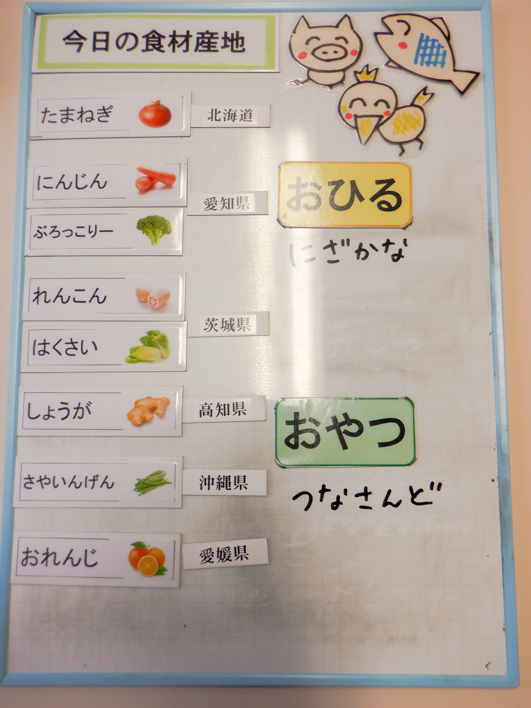 今日の食材産地
たまねぎ 北海道
にんじん
愛知県
ぶろっこりー
れんこん
茨城県
はくさい
しょうが 高知県
さやいんげん 沖縄県
おれんじ 愛媛県
おひる
にざかな
おやつ
つなさんど